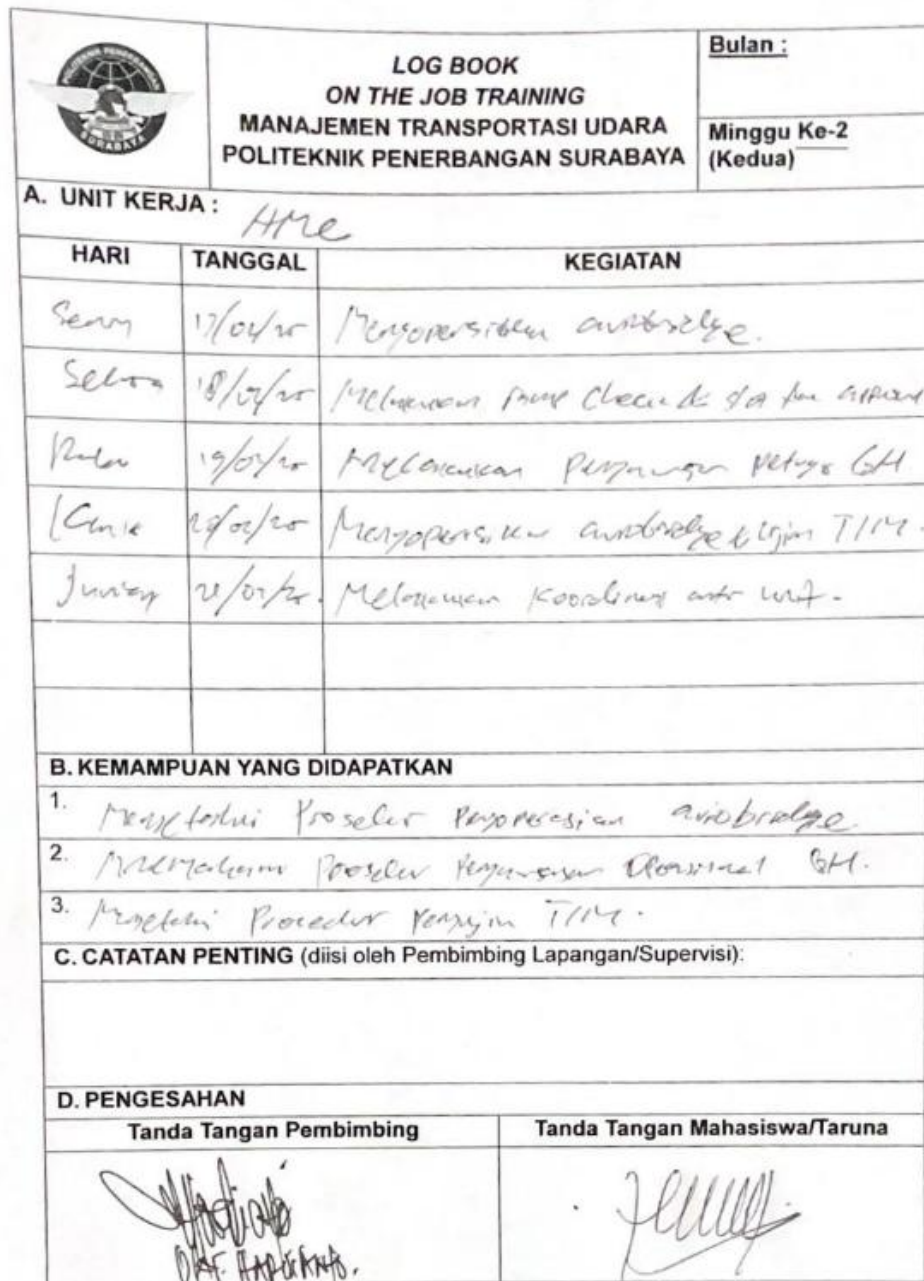 POLITEKNIK PENERBANGAN
SURABAYA
LOG BOOK
ON THE JOB TRAINING
MANAJEMEN TRANSPORTASI UDARA
POLITEKNIK PENERBANGAN SURABAYA
Bulan :
Minggu Ke-2
(Kedua)
A. UNIT KERJA : AMC
HARI TANGGAL KEGIATAN
Senin 17/02/25 Mengoperasikan aviobridge.
Selasa 18/02/25 Melakukan ramp check di
Rabu 19/02/25 Melakukan Pengawasan petugas GH
Kamis 20/02/25 Mengoperasikan aviobridge & Ujian TIM.
Jumat 21/02/25. Melakukan Koordinasi antar unit.
B. KEMAMPUAN YANG DIDAPATKAN
1. Mengetahui Prosedur Pengoperasian aviobridge.
2. Memahami Prosedur Pengawasan Operasional GH.
3. Mengetahui Prosedur Pengujian TIM.
C. CATATAN PENTING (diisi oleh Pembimbing Lapangan/Supervisi):
D. PENGESAHAN
Tanda Tangan Pembimbing Tanda Tangan Mahasiswa/Taruna